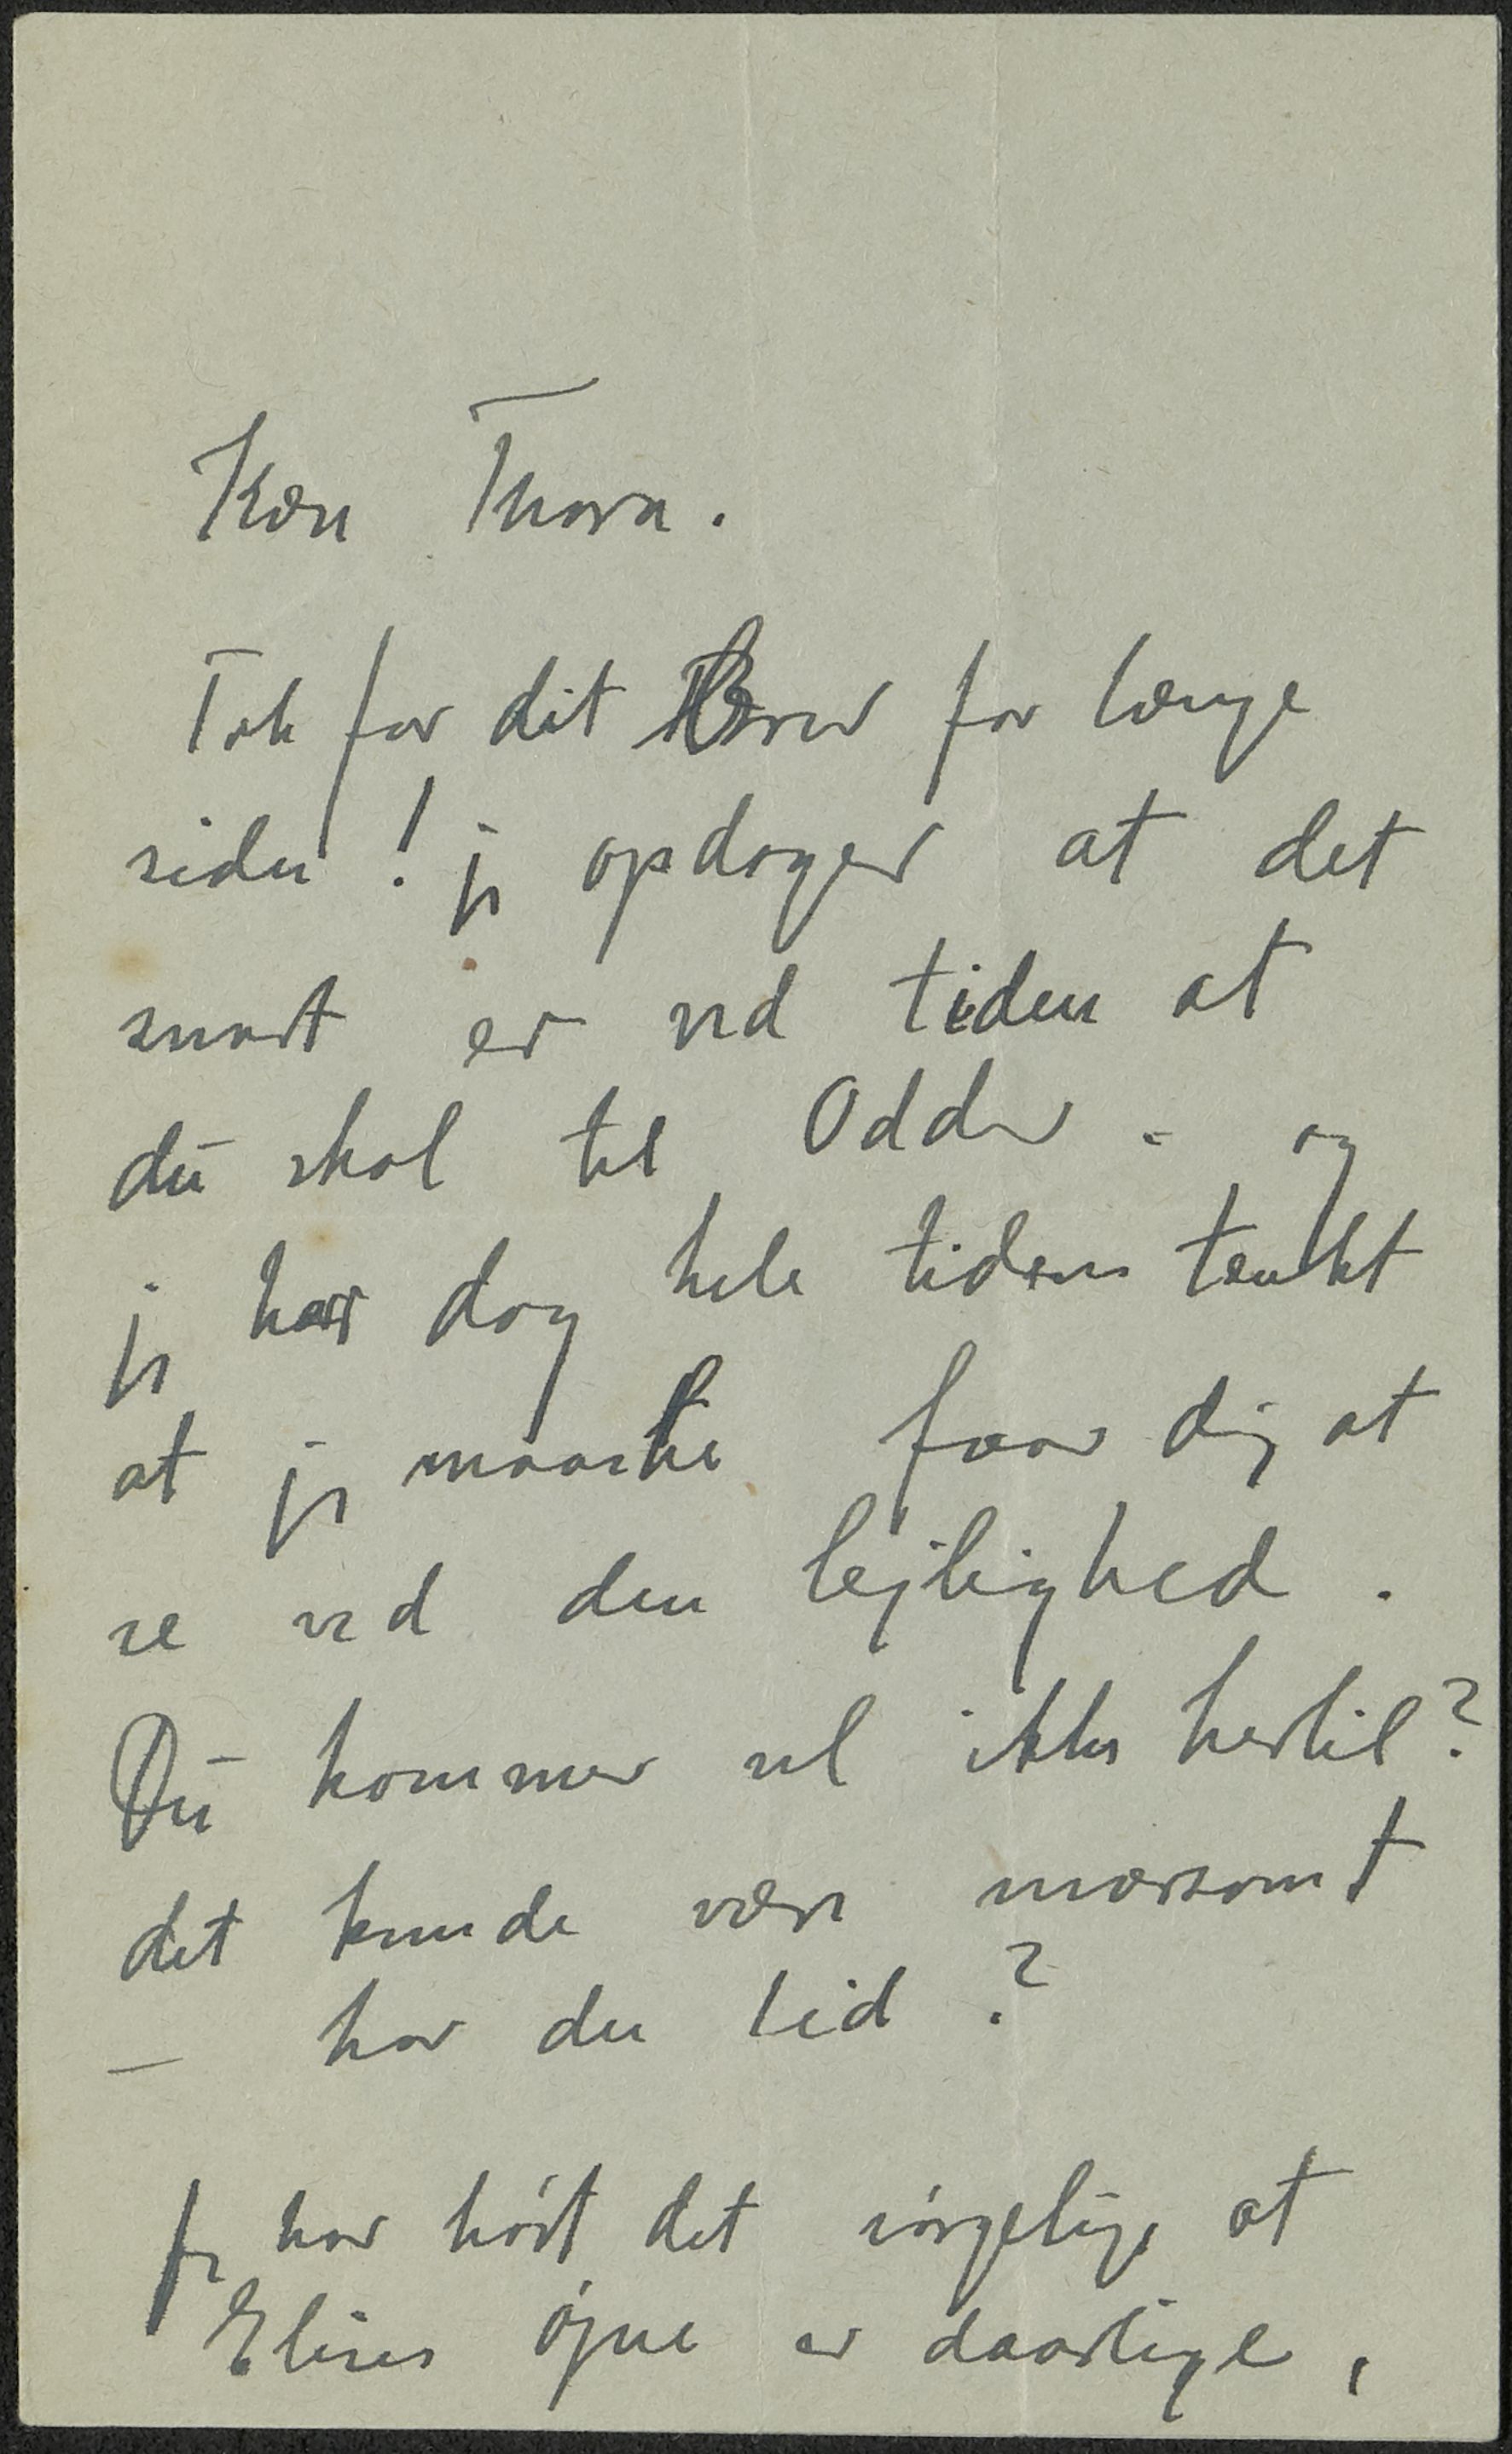 Kære Thora.
Tak for dit Brev for længe
siden! jeg opdager at det
snart er ved tiden at
du skal til Odder - og
jeg har dog hele tiden tænkt
at jeg maaske faar dig at
se ved den lejlighed.
Du kommer vel ikke hertil?
det kunde være morsomt
— har du tid?
Jeg har hørt det sørgelige at
Elises øjne er daarlige,